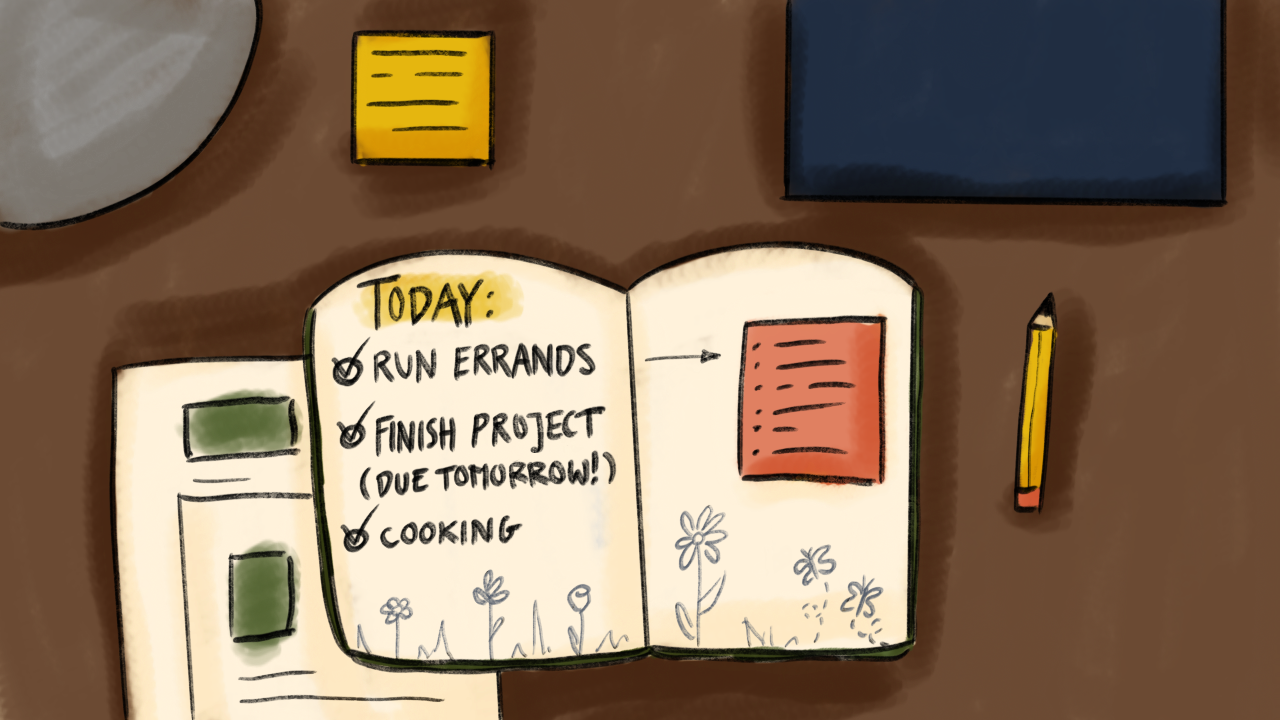 TODAY:
RUN ERRANDS
FINISH PROJECT
(DUE TOMORROW!)
COOKING